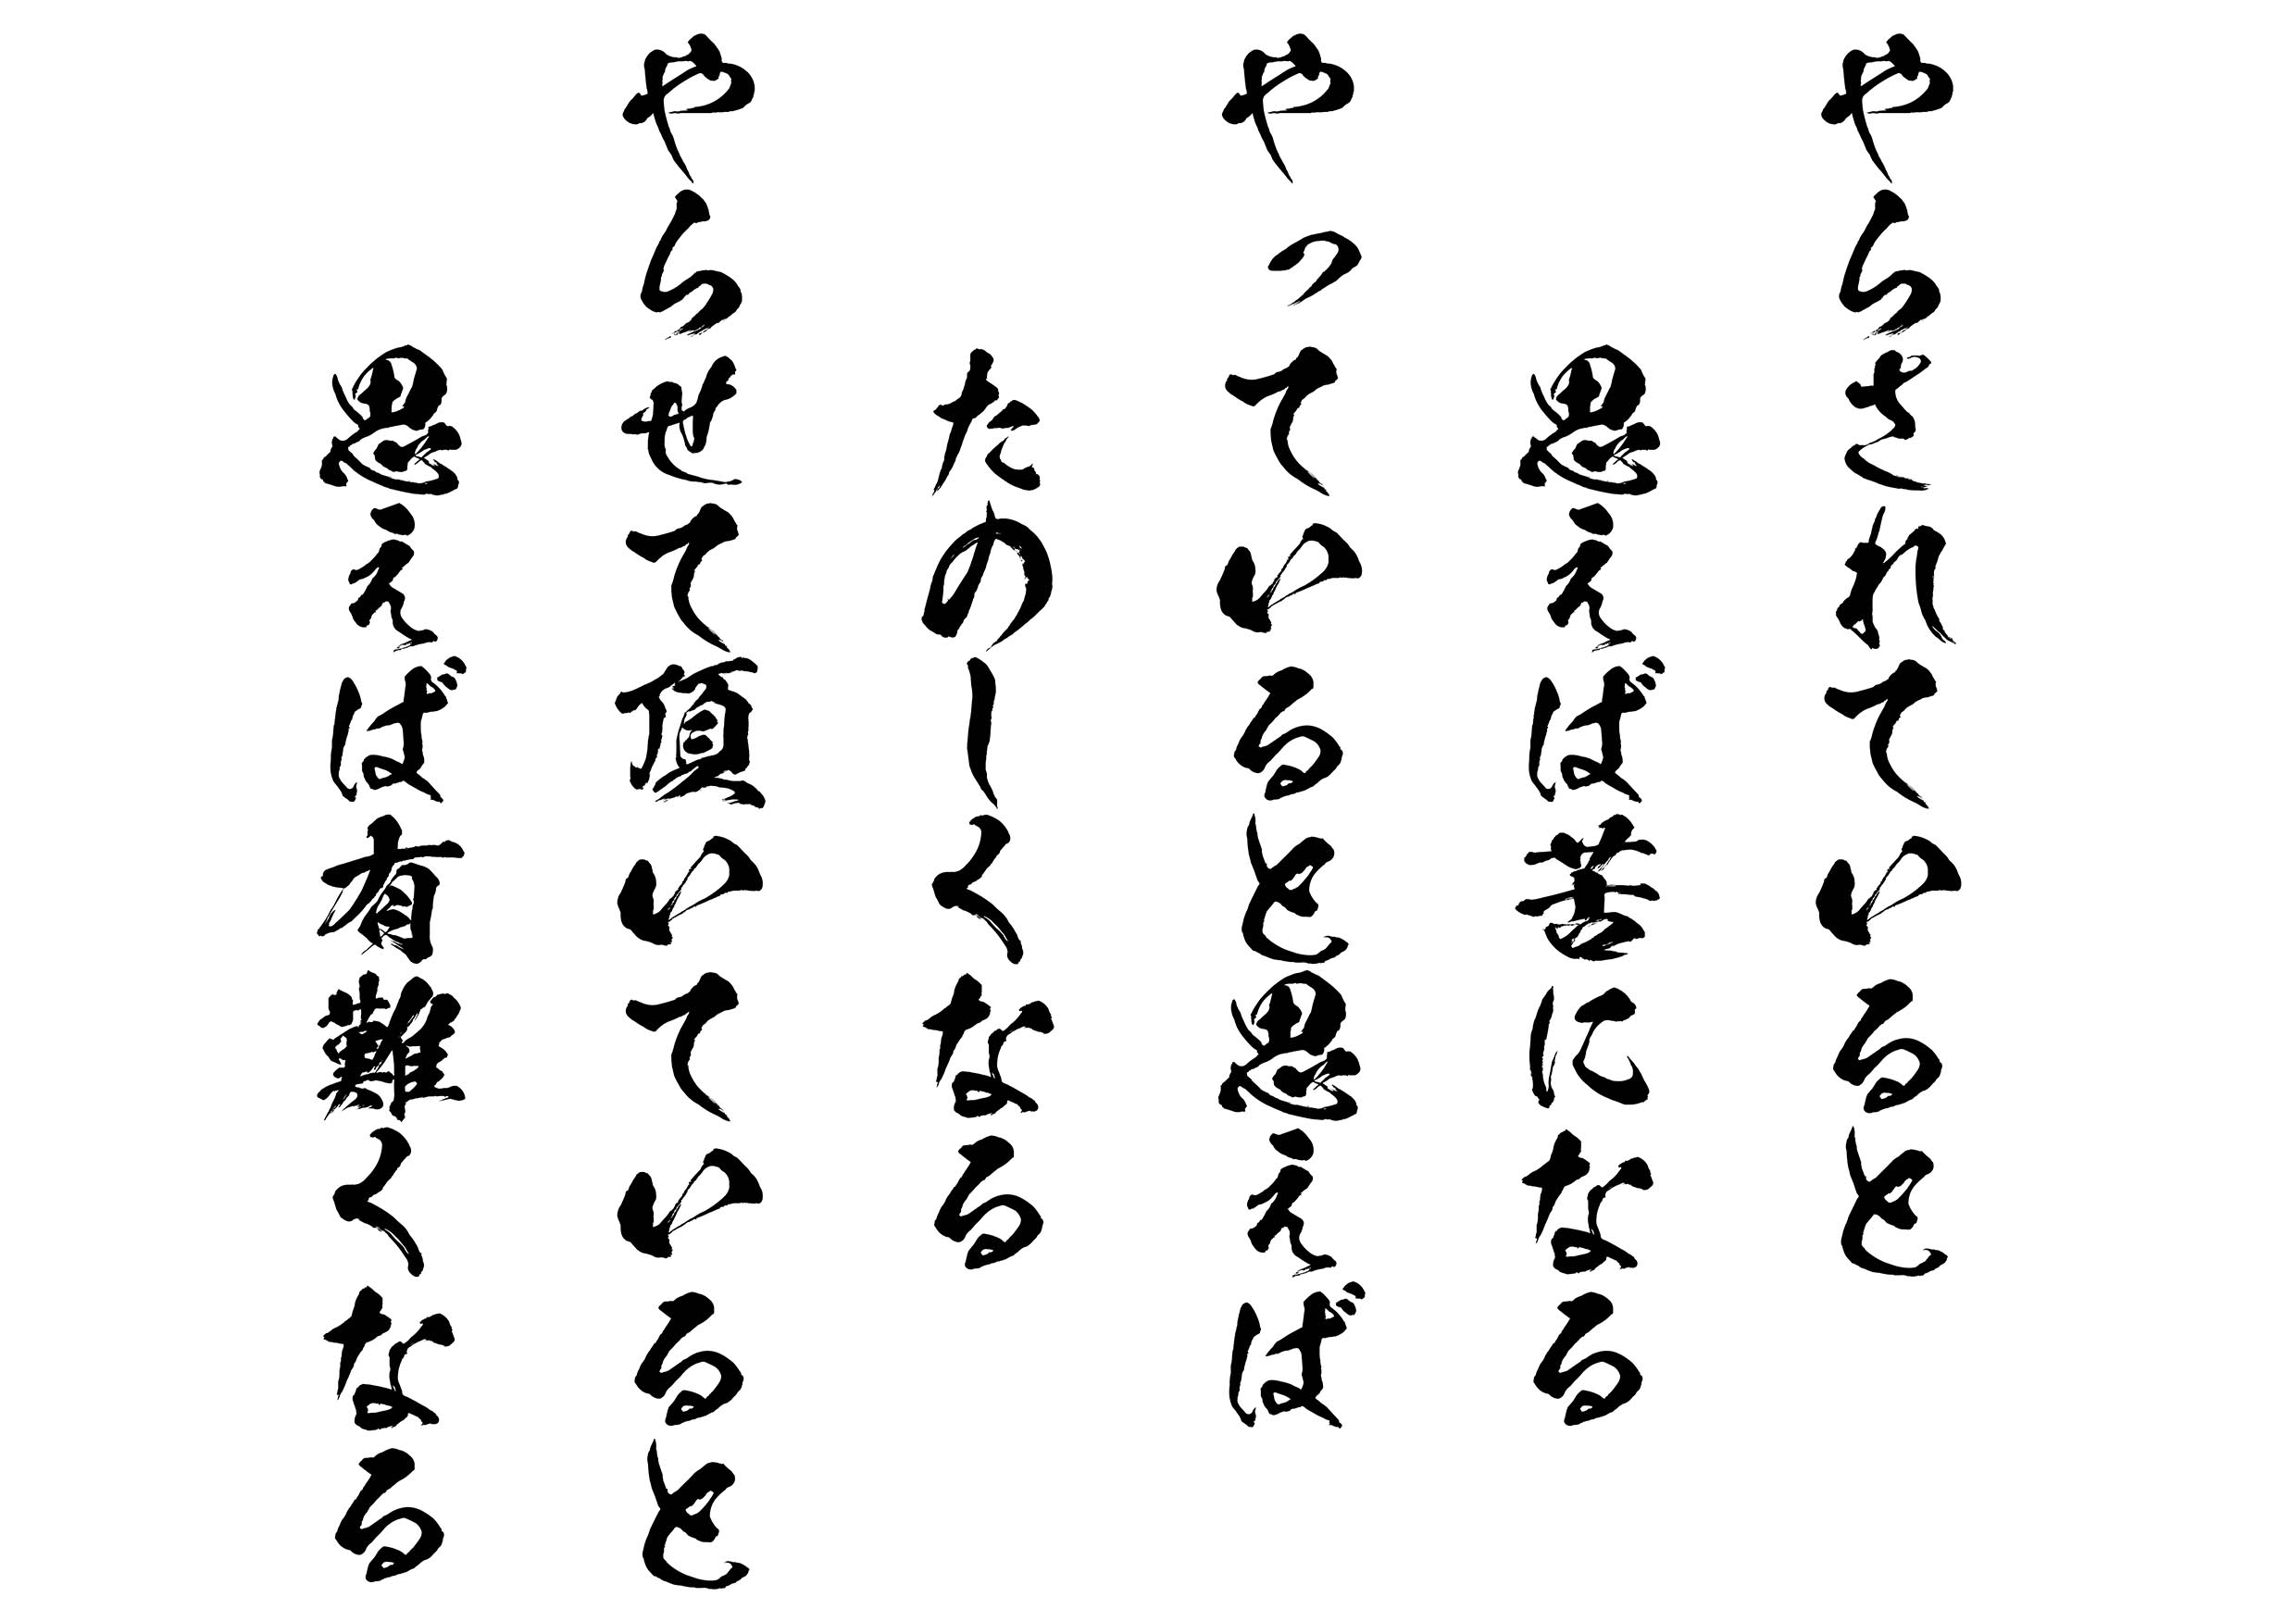 やらされていると
思えば苦になる
やっていると思えば
たのしくなる
やらせて頂いていると
思えば有難くなる